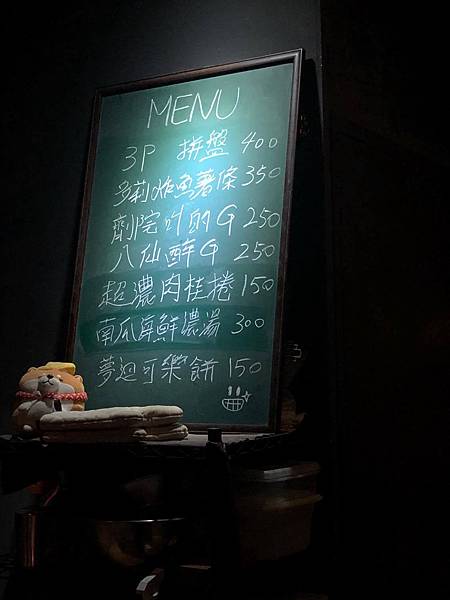 MENU
3P 拼盤 400
多莉炸魚薯條 350
劑院叶的G 250
八仙醉G 250
超濃肉桂捲 150
南瓜海鮮濃湯 300
夢迴可樂餅 150